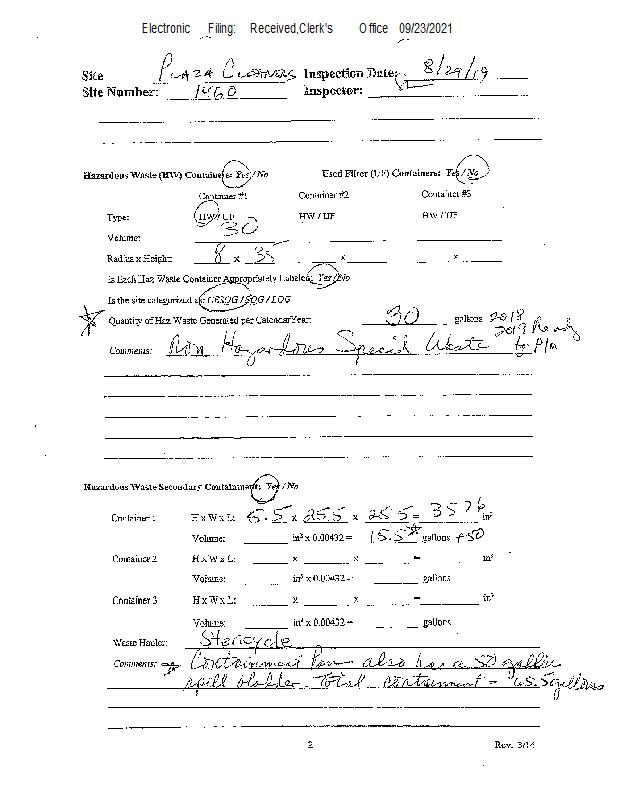 Electronic Filing: Received, Clerk's Office 09/23/2021
Site Plaza Cleaners Inspection Date: 8/29/19
Site Number: 1460 Inspector:
Hazardous Waste (HW) Containers: Yes / No Used Filter (UF) Containers: Yes / No
Container #1 Container #2 Container #3
Type: HW / UF HW / UF HW / UF
Volume: 30
Radius x Height: 8 x 35 x x
Is Each Haz Waste Container Appropriately Labeled: Yes / No
Is the site categorized as: CESQG / SQG / LQG
Quantity of Haz Waste Generated per Calendar Year: 30 gallons 2018
2019 Ready
Comments: Non Hazardous Special Waste to P/u
Hazardous Waste Secondary Containment: Yes / No
Container 1 H x W x L: 5.5 x 25.5 x 25.5 = 3576 in³
Volume: in³ x 0.00432 = 15.5* gallons +50
Container 2 H x W x L: x x = in³
Volume: in³ x 0.00432 = gallons
Container 3 H x W x L: x x = in³
Volume: in³ x 0.00432 = gallons
Waste Hauler: Stericycle
Comments: * Containment Pan also has a 50 gallon
spill bladder. Total containment = 65.5 gallons
2 Rev. 3/14